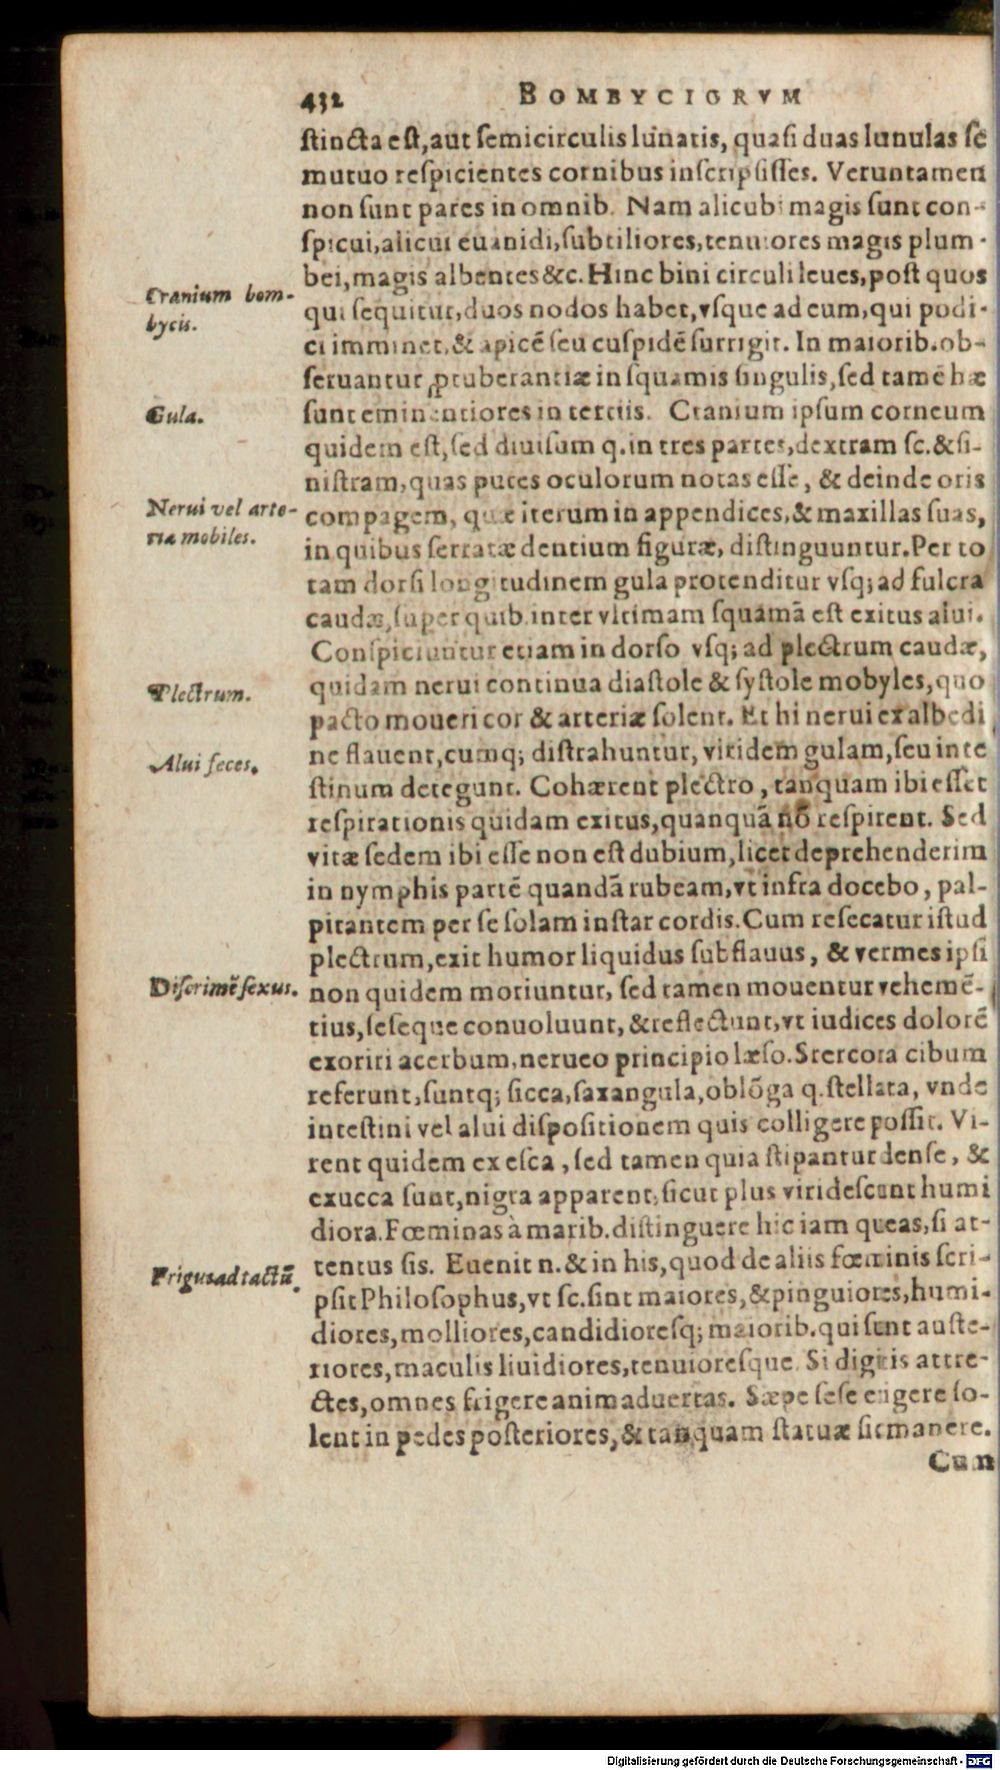 432 BOMBYCIORVM
stincta est,aut semicirculis lunatis, quasi duas lunulas se
mutuo respicientes cornibus inscripsisses. Veruntamen
non sunt pares in omnib. Nam alicubi magis sunt con-
spicui,alicui euanidi,subtiliores,tenuiores magis plum-
bei,magis albentes &c. Hinc bini circuli leues,post quos
Cranium bom-
bycis.
qui sequitur,duos nodos habet,vsque ad eum,qui podi-
ci imminet,& apicē seu cuspidē surrigit. In maiorib.ob-
seruantur ꝓtuberantiæ in squamis singulis,sed tamē hæ
Gula.
sunt eminentiores in tertiis. Cranium ipsum corneum
quidem est,sed diuisum q.in tres partes,dextram sc.&si-
nistram,quas putes oculorum notas esse, & deinde oris
Nerui vel arte-
riæ mobiles.
compagem, quæ iterum in appendices,& maxillas suas,
in quibus serratæ dentium figuræ, distinguuntur.Per to
tam dorsi longitudinem gula protenditur vsq; ad fulcra
caudæ,super quib.inter vltimam squamā est exitus alui.
Conspiciuntur etiam in dorso vsq; ad plectrum caudæ,
Plectrum.
quidam nerui continua diastole & systole mobyles,quo
pacto moueri cor & arteriæ solent. Et hi nerui ex albedi
ne flauent,cumq; distrahuntur, viridem gulam,seu inte
Alui feces.
stinum detegunt. Cohærent plectro, tanquam ibi esset
respirationis quidam exitus,quanquā nō respirent. Sed
vitæ sedem ibi esse non est dubium,licet deprehenderim
in nymphis partē quandā rubeam,vt infra docebo, pal-
pitantem per se solam instar cordis.Cum resecatur istud
plectrum,exit humor liquidus subflauus, & vermes ipsi
Discrimē sexus.
non quidem moriuntur, sed tamen mouentur vehemē-
tius,seseque conuoluunt,&reflectunt,vt iudices dolorē
exoriri acerbum,nerueo principio læso.Stercora cibum
referunt,suntq; sicca,saxangula,oblōga q.stellata, vnde
intestini vel alui dispositionem quis colligere possit. Vi-
rent quidem ex esca, sed tamen quia stipantur dense, &
exucca sunt,nigra apparent,sicut plus viridescunt humi
diora.Fœminas à marib.distinguere hic iam queas,si at-
Frigus ad tactū.
tentus sis. Euenit n.& in his,quod de aliis fœminis scri-
psit Philosophus,vt sc.sint maiores,&pinguiores,humi-
diores,molliores,candidioresq; maiorib.qui sunt auste-
riores,maculis liuidiores,tenuioresque. Si digitis attre-
ctes,omnes frigere animaduertas. Sæpe sese erigere so-
lent in pedes posteriores,& tanquam statuæ sic manere.
Cum